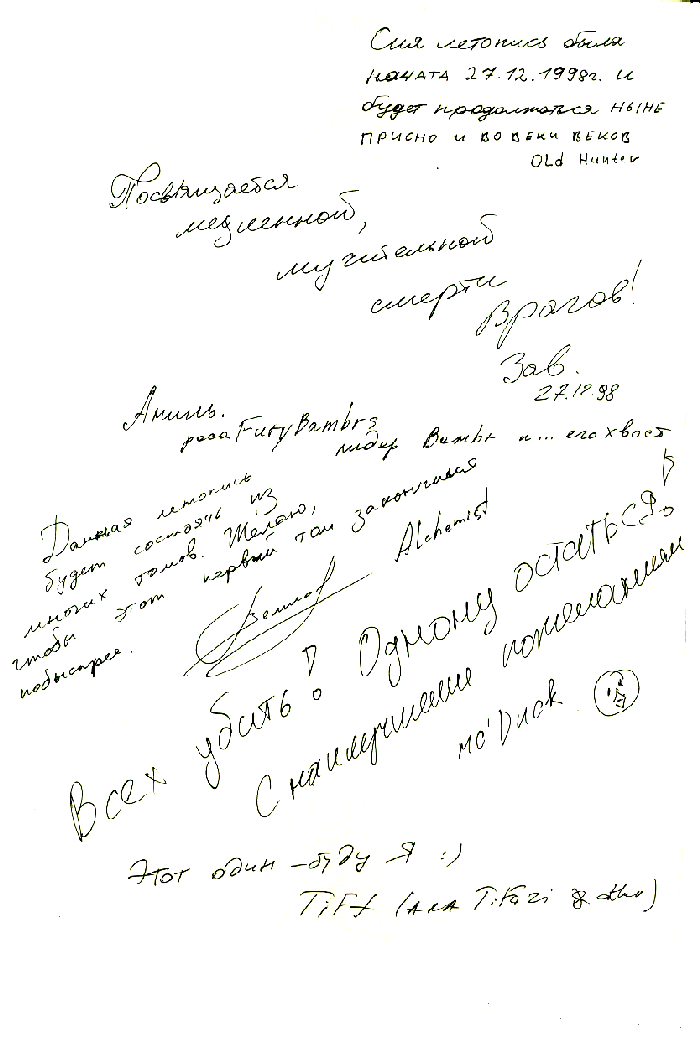 Сия летопись была
начата 27.12.1998г. и
будет продолжатся ныне
присно и во веки веков
Old Hunter
Посвящается
медленной,
мучительной
смерти
Врагов!
Зав.
27.12.98
Амиль.
раса Fury Bambrs
лидер Bambr и... его хвост
Данная летопись
будет состоять из
многих томов. Желаю,
чтобы этот первый том закончился
побыстрее.
Alchemist
Всех убить! Одному остаться
С наилучшими пожеланиями
Этот один - буду Я :)
TiFi (aka TiFozi